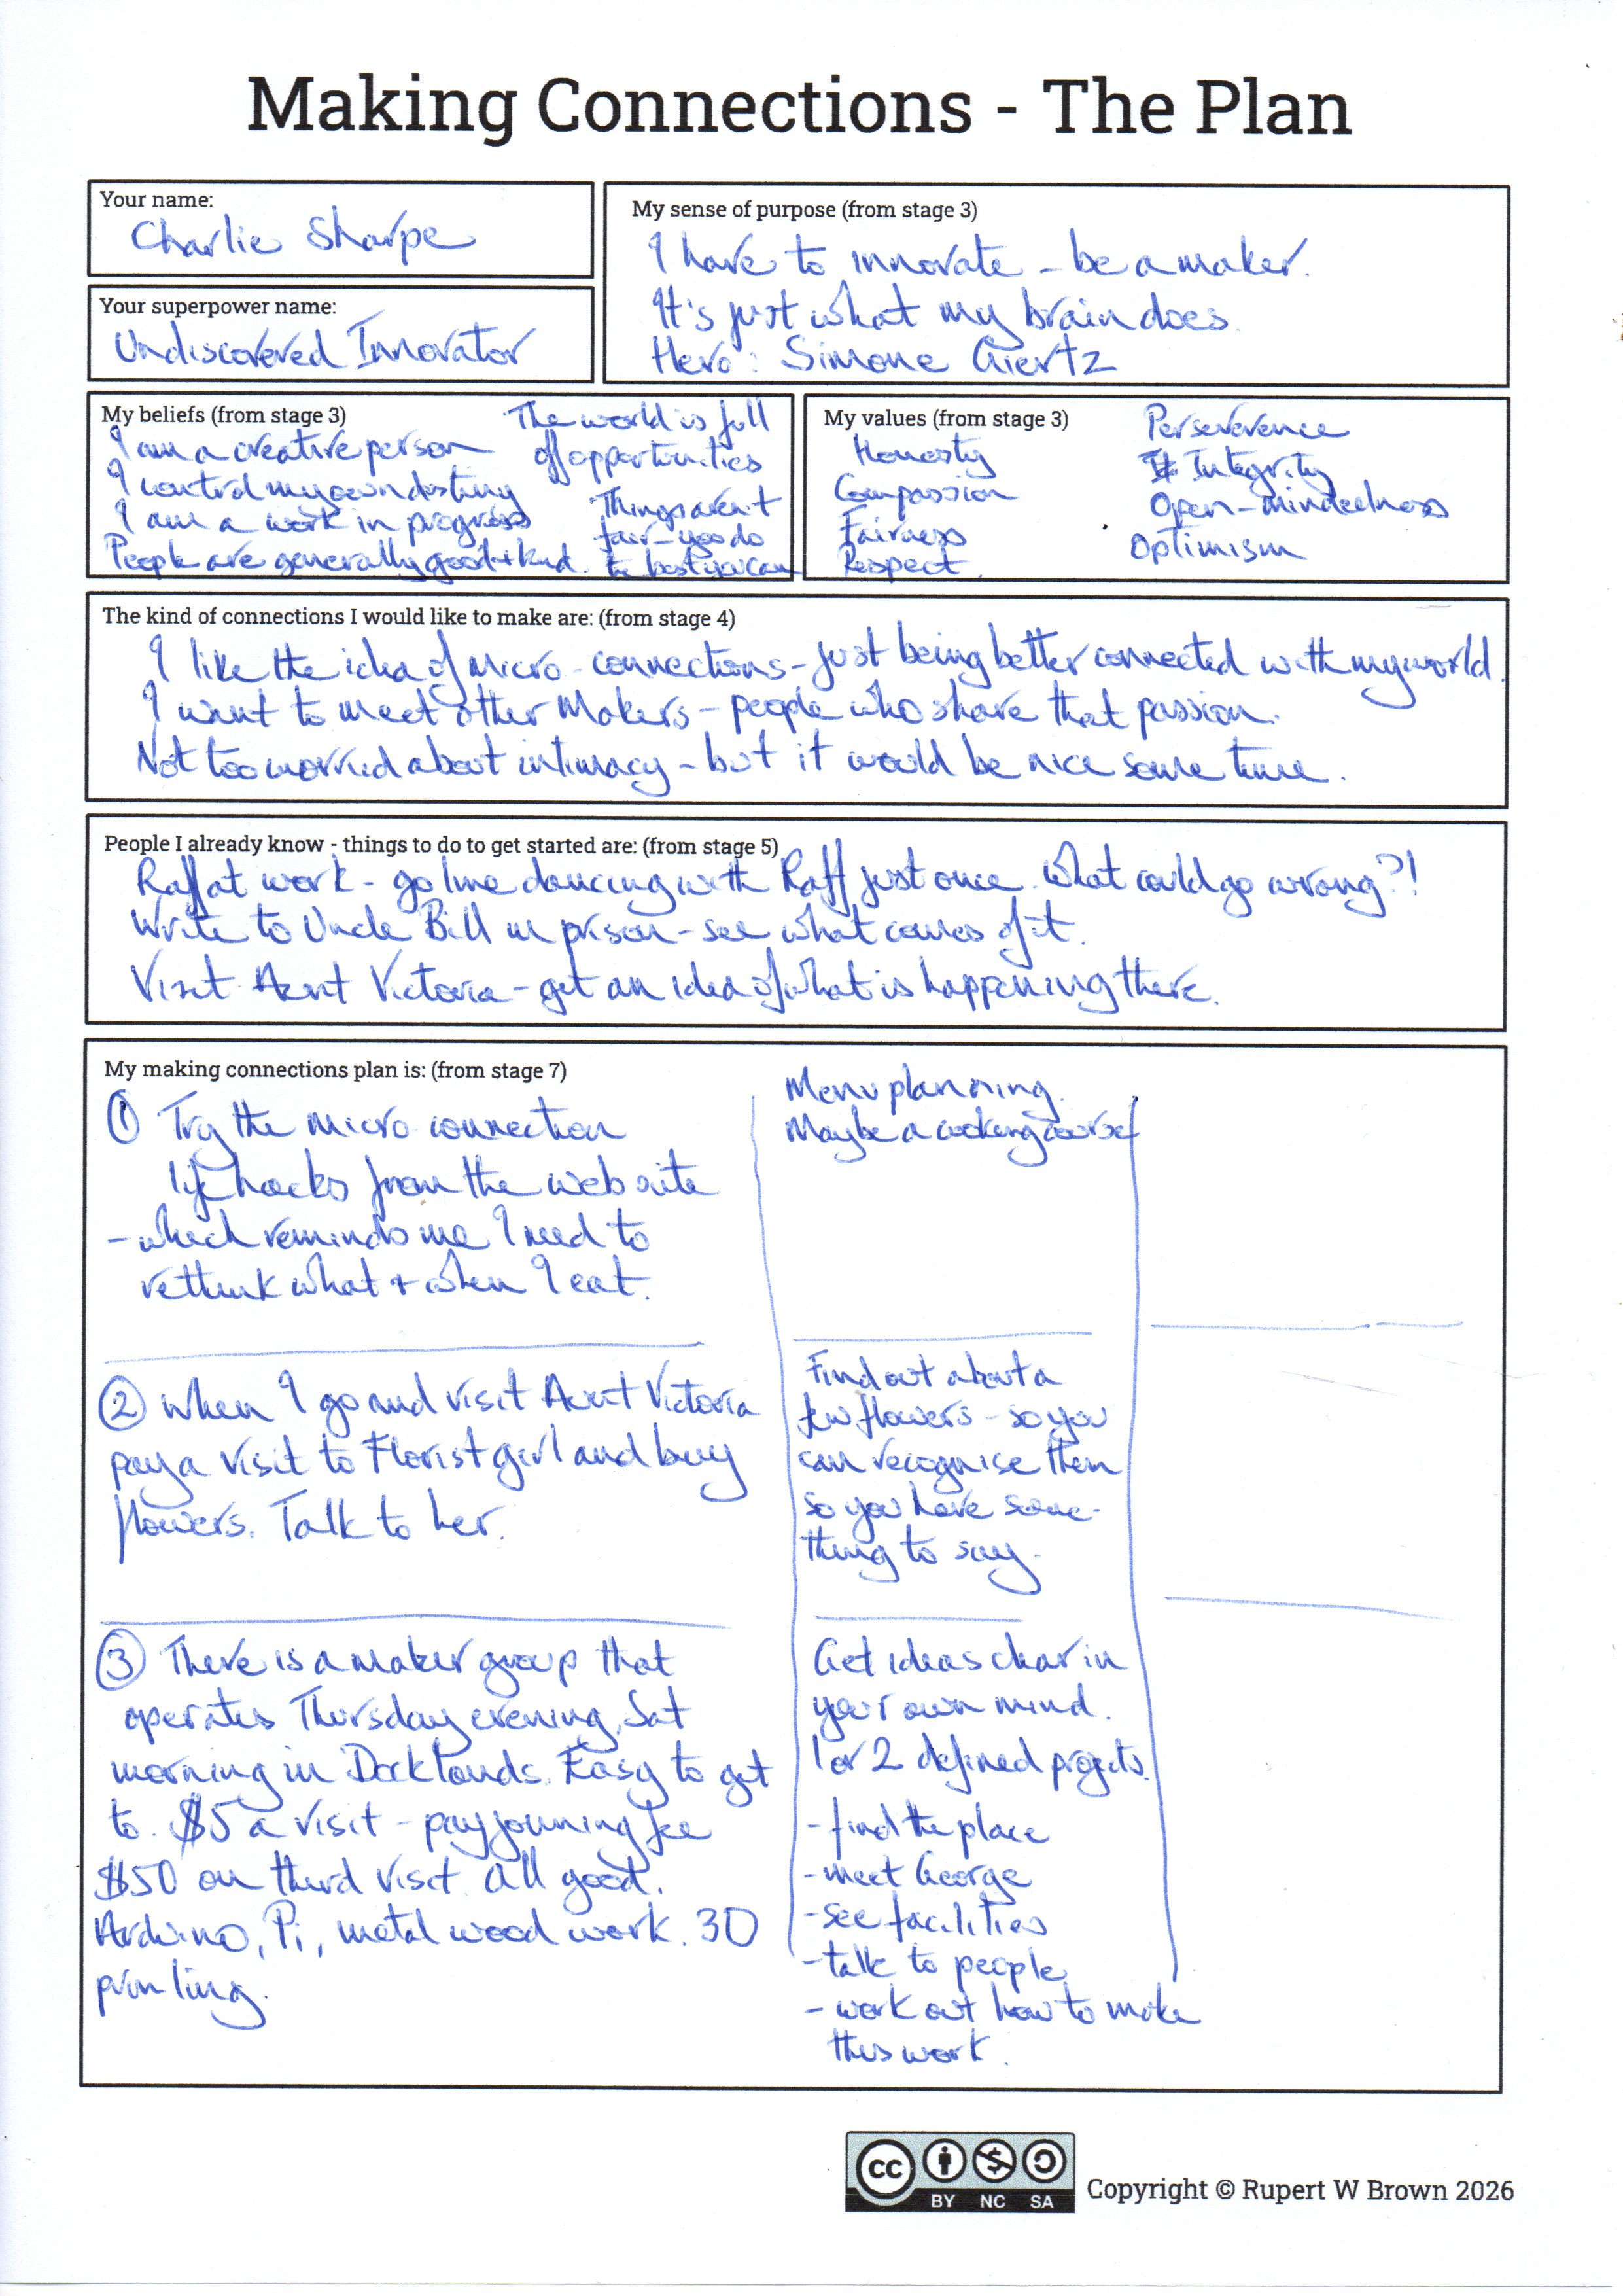 Making Connections - The Plan
Your name:
Charlie Sharpe
Your superpower name:
Undiscovered Innovator
My sense of purpose (from stage 3)
I have to innovate - be a maker.
It's just what my brain does.
Hero: Simone Giertz
My beliefs (from stage 3)
I am a creative person
I control my own destiny
I am a work in progress
People are generally good + kind.
The world is full
of opportunities
Things arent
fair - you do
the best you can
My values (from stage 3)
Honesty
Compassion
Fairness
Respect
Perseverence
Integrity
Open-mindedness
Optimism
The kind of connections I would like to make are: (from stage 4)
I like the idea of Micro-connections - just being better connected with my world.
I want to meet other Makers - people who share that passion.
Not too worried about intimacy - but it would be nice some time.
People I already know - things to do to get started are: (from stage 5)
Raff at work - go line dancing with Raff just once. What could go wrong?!
Write to Uncle Bill in prison - see what comes of it.
Visit Aunt Victoria - get an idea of what is happening there.
My making connections plan is: (from stage 7)
① Try the micro connection
life hacks from the web site
- which reminds me I need to
rethink what + when I eat.
Menu planning.
Maybe a cooking course
② When I go and visit Aunt Victoria
pay a visit to Florist girl and buy
flowers. Talk to her.
Find out about a
few flowers - so you
can recognise them
so you have some-
thing to say.
③ There is a maker group that
operates Thursday evening, Sat
morning in Docklands. Easy to get
to. $5 a visit - pay joining fee
$50 on third visit. All good.
Arduino, Pi, metal wood work. 3D
printing.
Get ideas clear in
your own mind.
1 or 2 defined projects.
- find the place
- meet George
- see facilities
- talk to people
- work out how to make
this work.
CC BY NC SA
Copyright © Rupert W Brown 2026